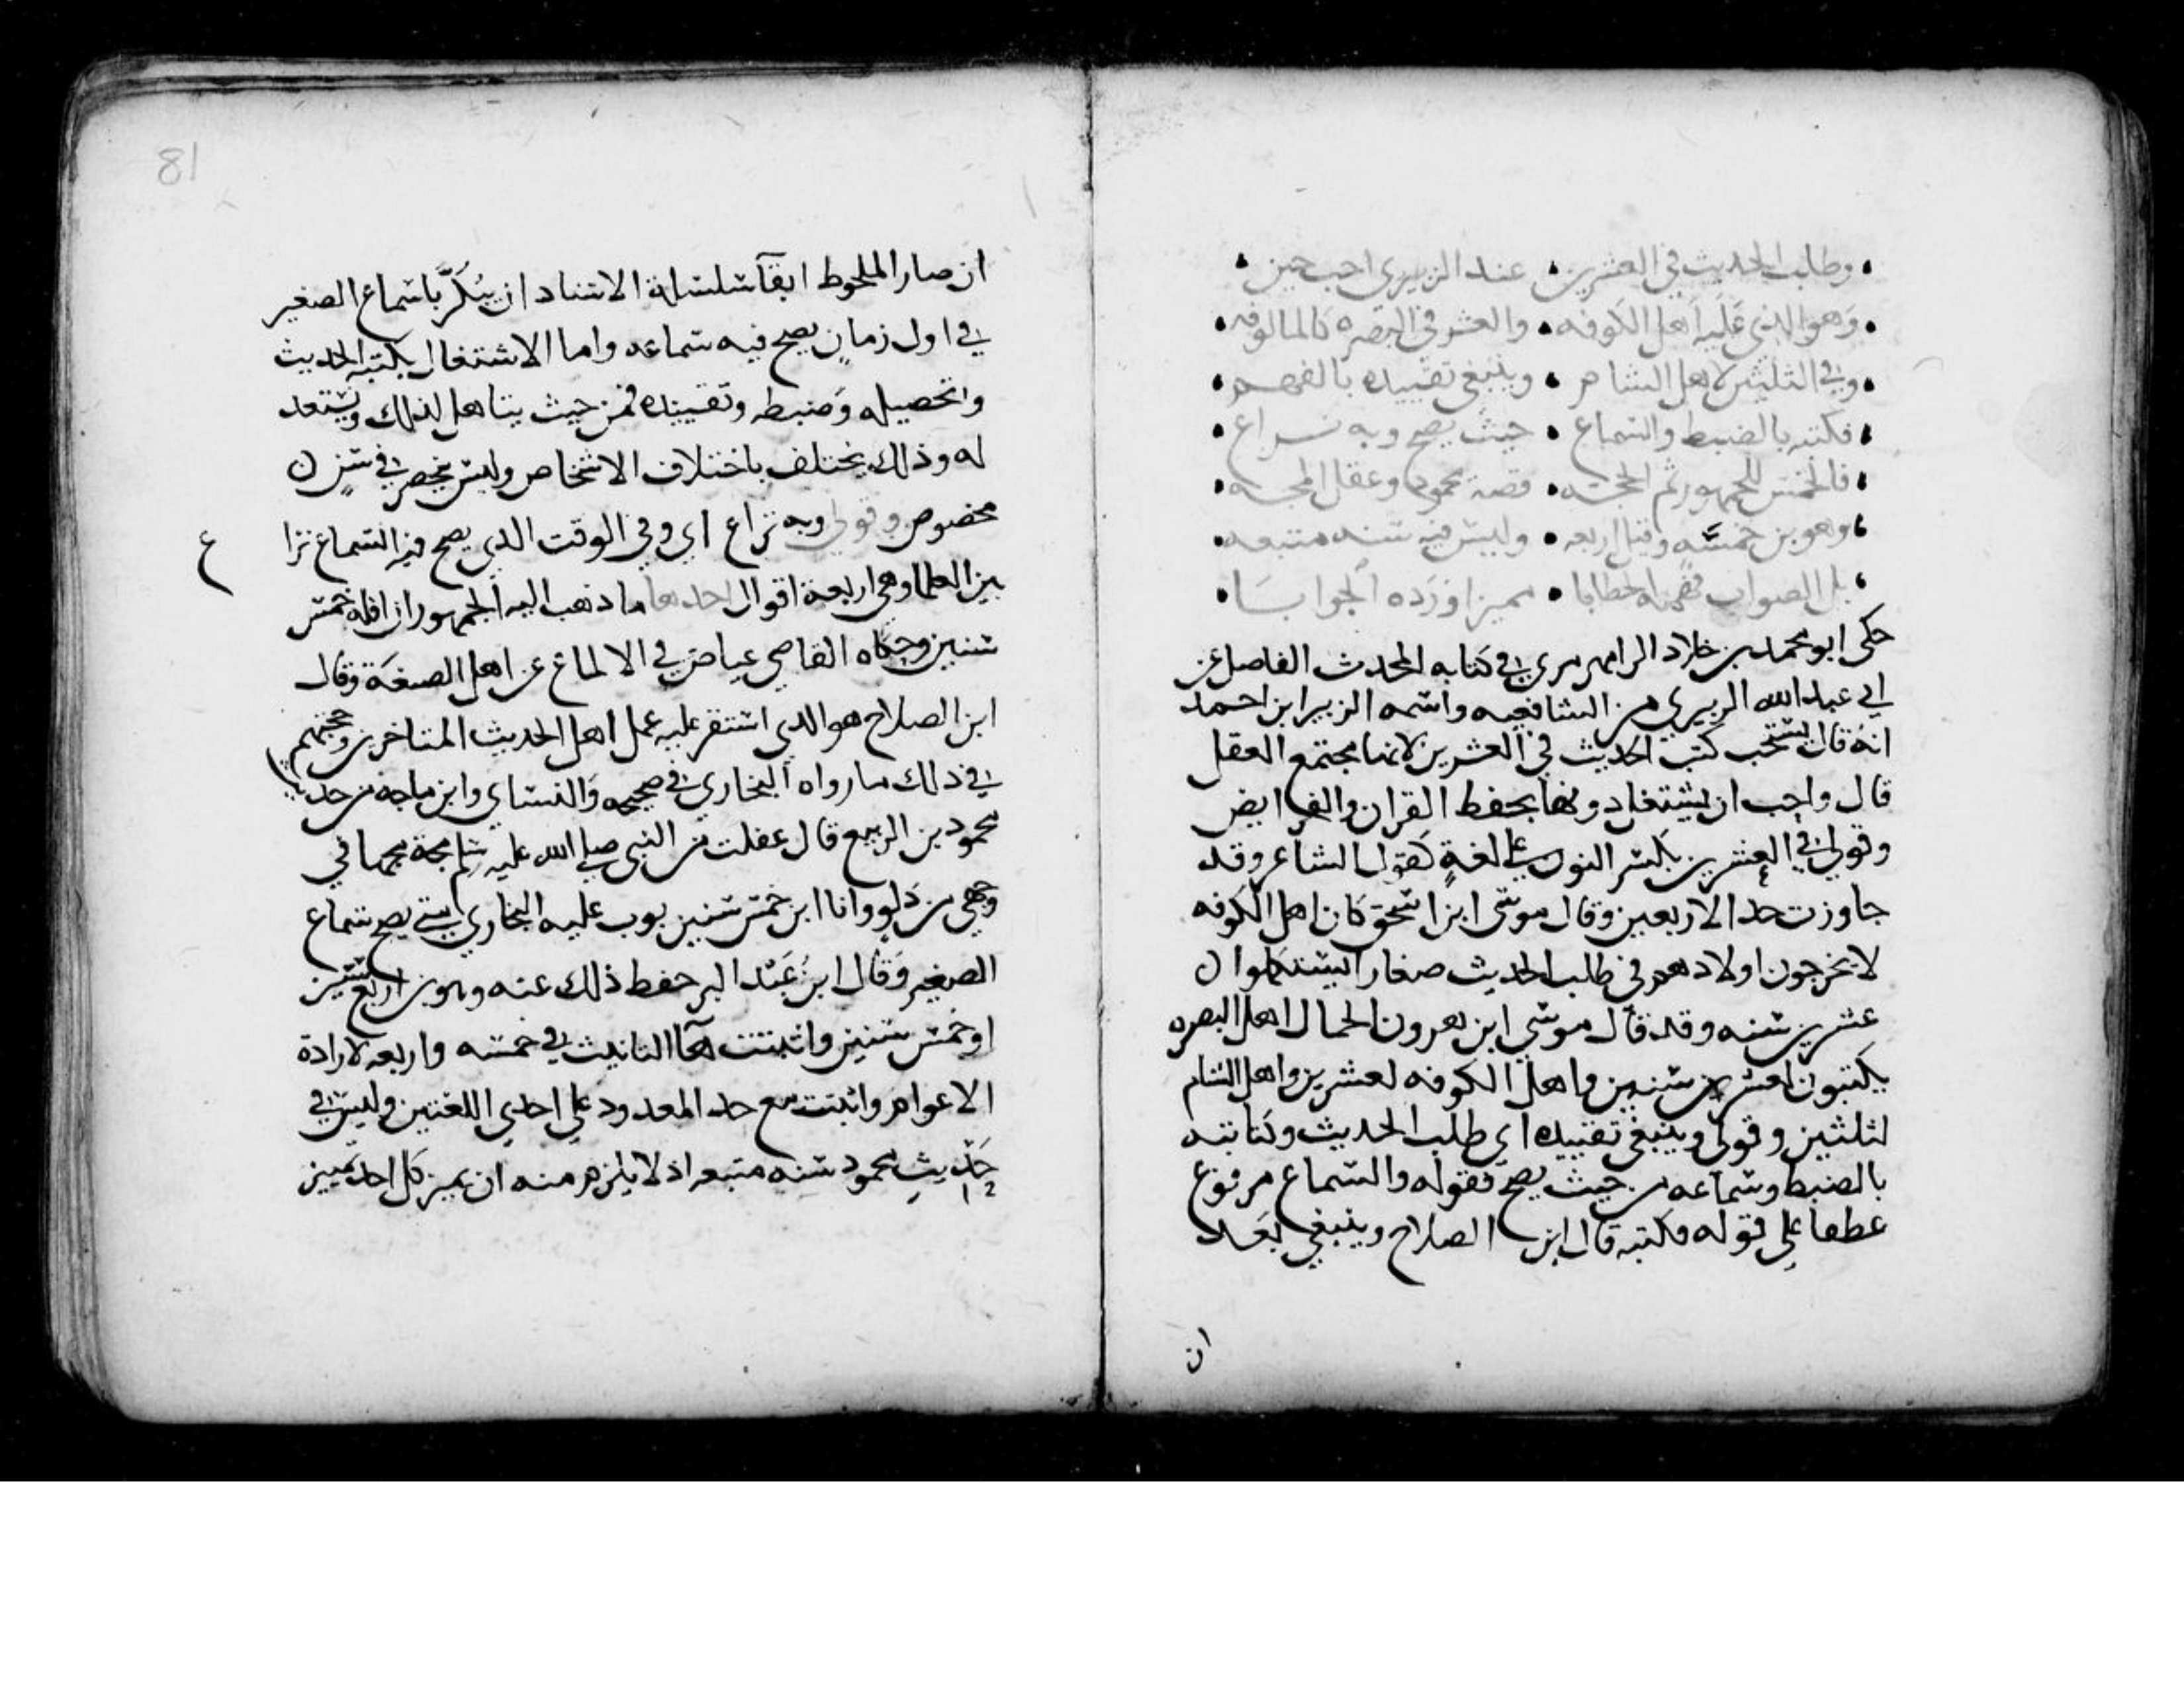 وطلب الحديث في العشرين • عند الزبيري احب حين •
وهو الذي عليه اهل الكوفه • والعشر في البصره كالمالوفه •
وفي الثلثين لاهل الشام • وينبغي تقييده بالفهم •
فكتبه بالضبط والسماع • حيث يصح وبه نزاع •
فالخمس للجمهور ثم الحجه • قصة محمود وعقل المجه •
وهو بن خمسه وقيل اربعه • وليس فيه سنه متبعه •
بل الصواب فهمه الخطابا • مميزا ورده الجوابا •
حكى ابو محمد بن خلاد الرامهرمزي في كتابه المحدث الفاصل عن
ابي عبد الله الزبيري من الشافعيه واسمه الزبير ابن احمد
انه قال يستحب كتب الحديث في العشرين لانها مجتمع العقل
قال واحب ان يشتغل دونها بحفظ القران والفرايض
وقولي في العشرين بكسر النون على لغة كقول الشاعر وقد
جاوزت حد الاربعين وقال موسى ابن اسحق كان اهل الكوفه
لا يخرجون اولادهم في طلب الحديث صغارا حتى يستكملوا
عشرين سنه وقد قال موسى ابن هرون الحمال اهل البصره
يكتبون لعشر سنين واهل الكوفه لعشرين واهل الشام
لثلثين وقولي وينبغي تقييده اي طلب الحديث وكتابته
بالضبط وسماعه من حيث يصح فقوله والسماع مرفوع
عطفا على قوله فكتبه قال ابن الصلاح وينبغي بعد
ان
81
ان صار الملحوظ ابقآ سلسلة الاسناد ان يبكر باسماع الصغير
في اول زمان يصح فيه سماعه واما الاشتغال بكتبه الحديث
وتحصيله وضبطه وتقييده فمن حيث يتاهل لذلك ويستعد
له وذلك يختلف باختلاف الاشخاص وليس ينحصر في سن
مخصوص وقولي وبه نزاع اي وفي الوقت الذي يصح فيه السماع نزا
ع
بين العلما وهي اربعة اقوال احدها ما ذهب اليه الجمهور ان اقله خمس
سنين وحكاه القاضي عياض في الالماع عن اهل الصنعة وقال
ابن الصلاح هو الذي استقر عليه عمل اهل الحديث المتاخرين وحجتهم
في ذلك ما رواه البخاري في صحيحه والنساي وابن ماجه من حديث
محمود بن الربيع قال عقلت من النبي صلى الله عليه وسلم مجة مجها في
وجهي من دلو وانا ابن خمس سنين بوب عليه البخاري متى يصح سماع
الصغير وقال ابن عبد البر حفظ ذلك عنه وهو بن اربع سنين
او خمس سنين واثبتت هآ التانيث في خمسه واربعه لارادة
الاعوام واثبتت مع حذ المعدود على احدي اللغتين وليس في
حديث محمود سنه متبعه اذ لا يلزم منه ان يميز كل احد تمييز